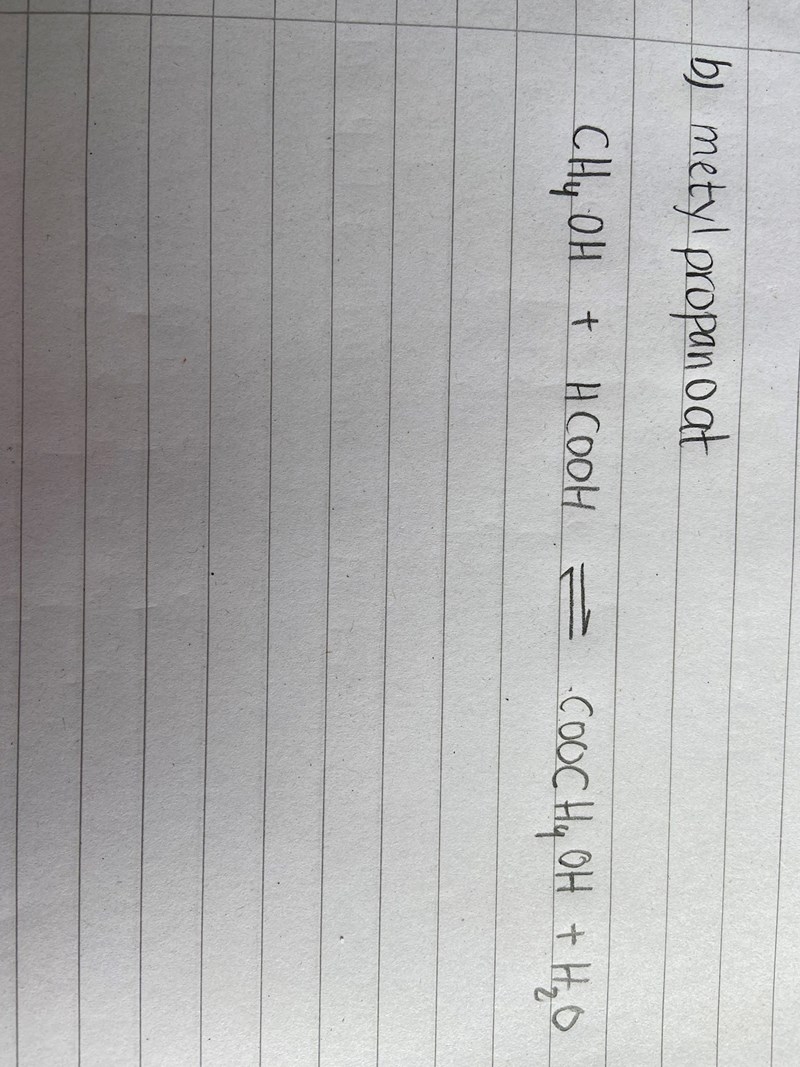 b) metylpropanoat
CH₄OH + HCOOH ⇌ COOCH₄OH + H₂O